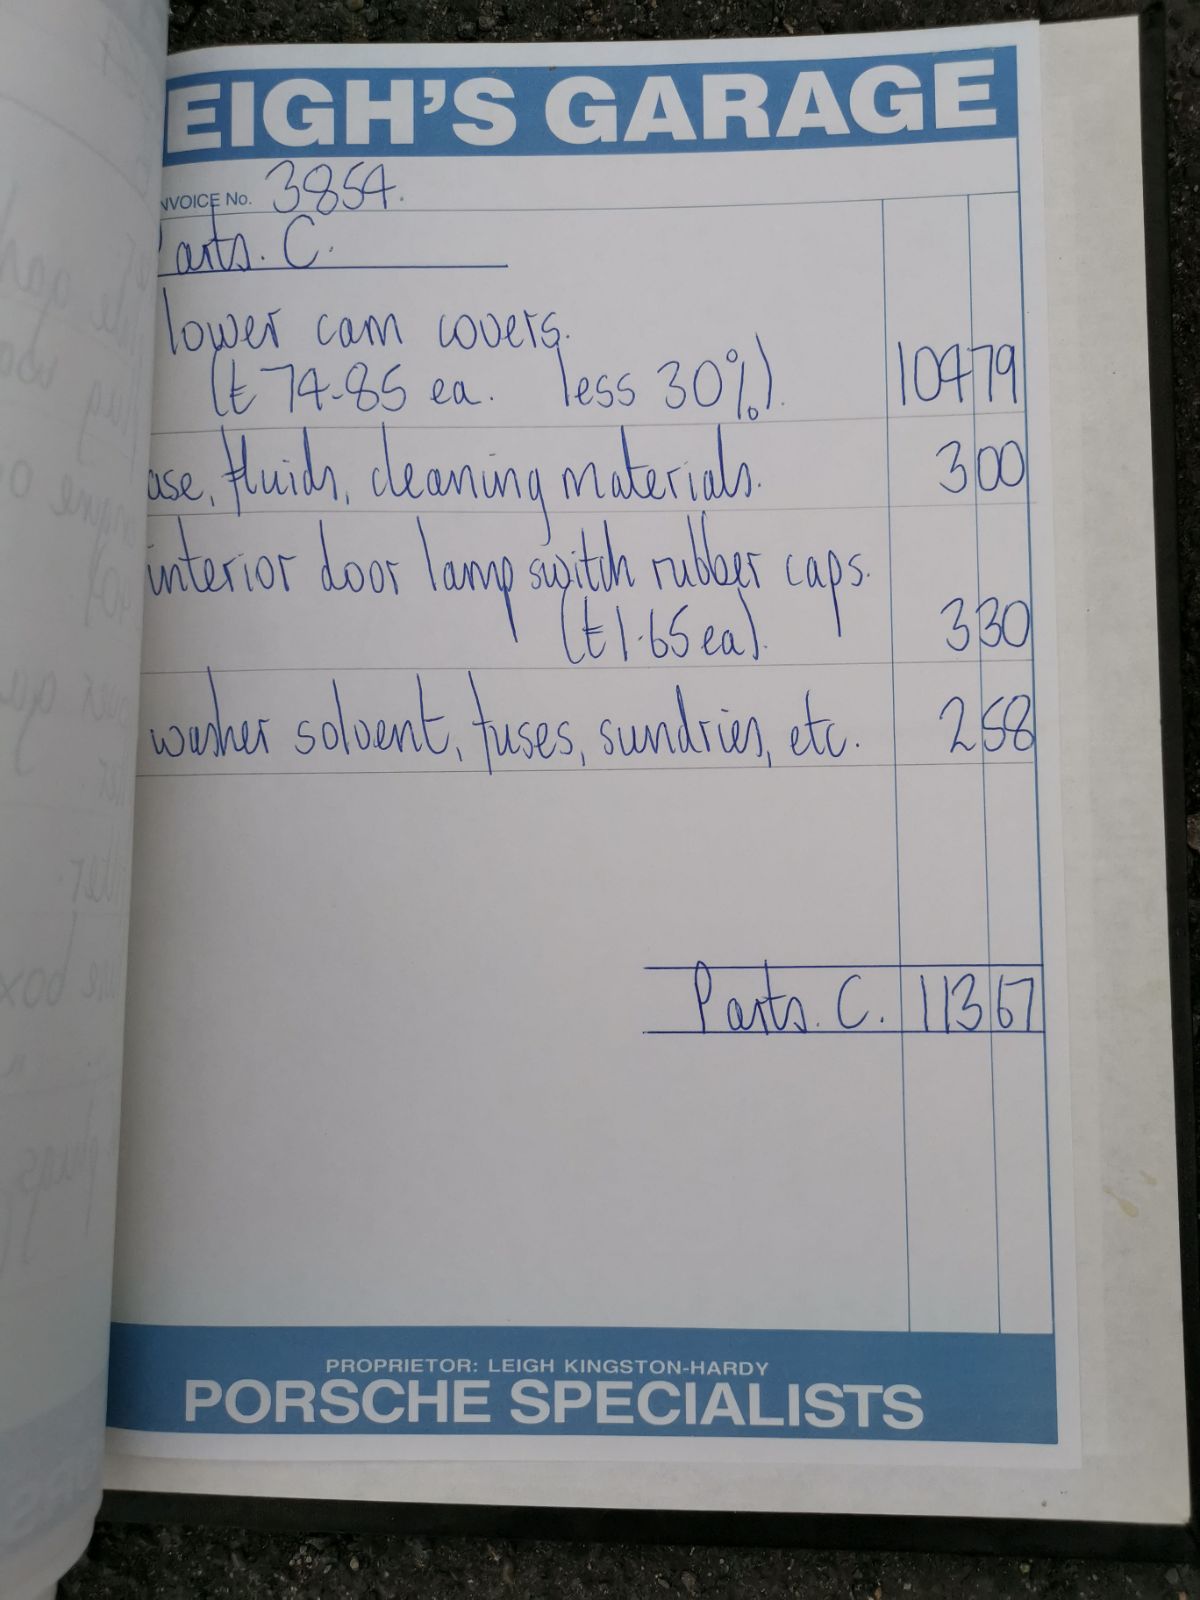 EIGH'S GARAGE
NVOICE No. 3854.
Parts. C.
lower cam covers.
(£74-85 ea. less 30%). 104 79
ase, fluids, cleaning materials. 3 00
interior door lamp switch rubber caps.
(£1.65 ea). 3 30
washer solvent, fuses, sundries, etc. 2 58
Parts. C. 113 67
PROPRIETOR: LEIGH KINGSTON-HARDY
PORSCHE SPECIALISTS